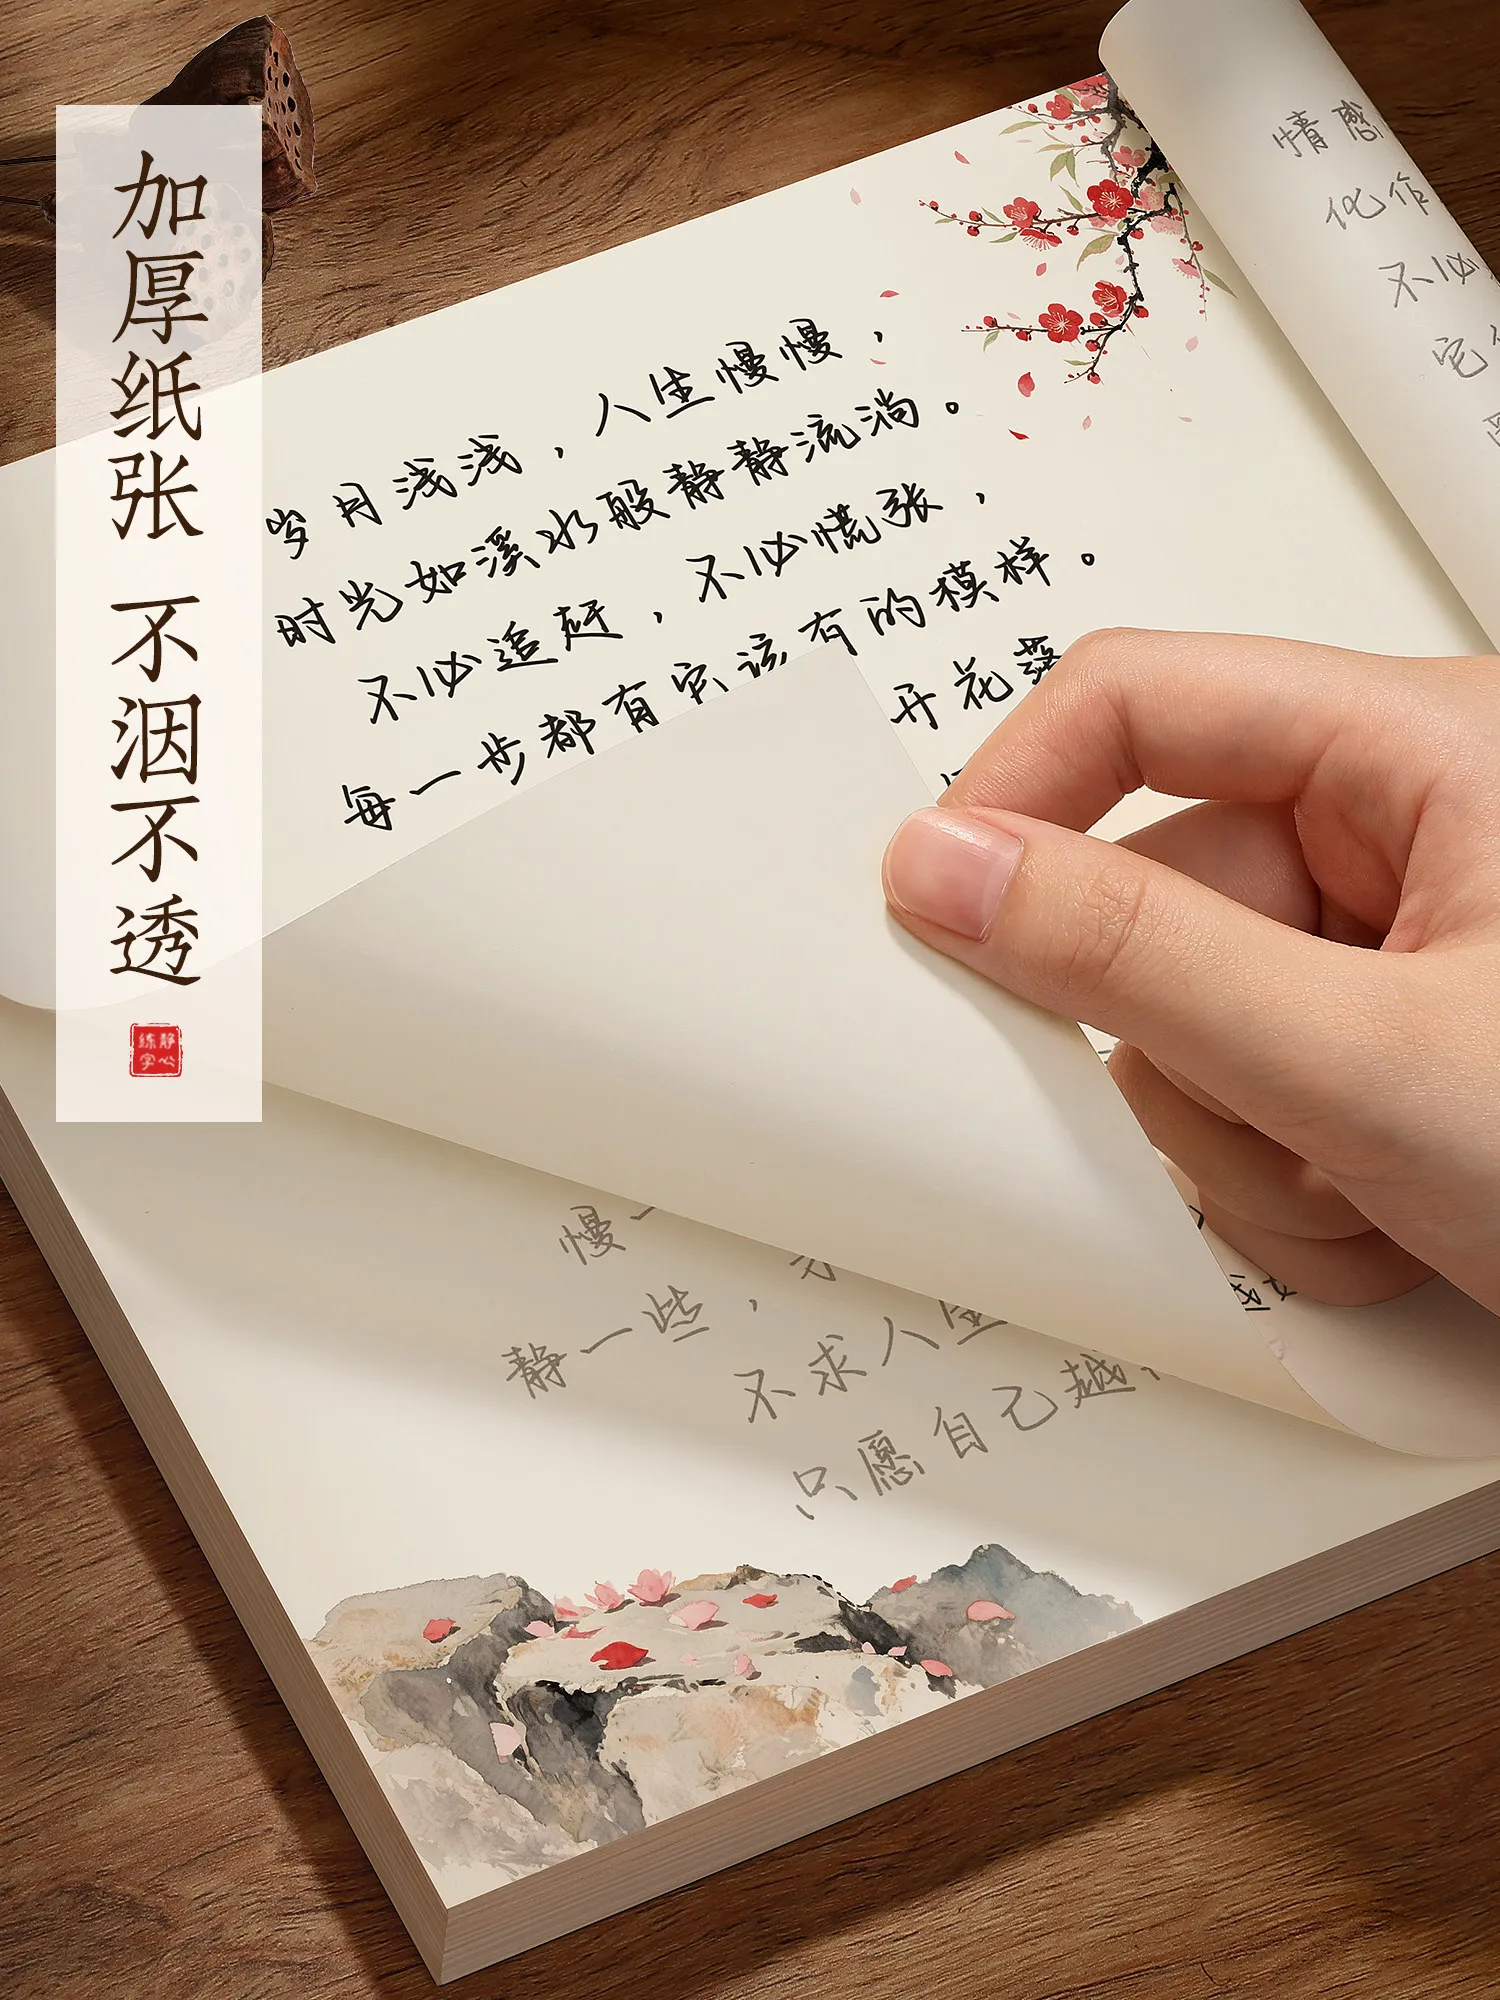 加厚纸张 不洇不透
静心
练字
岁月浅浅，人生慢慢，
时光如溪水般静静流淌。
不必追赶，不必慌张，
每一步都有它该有的模样。
开花落
情感
化作
不必
宅
慢一
静一些，
不求人生
只愿自己越